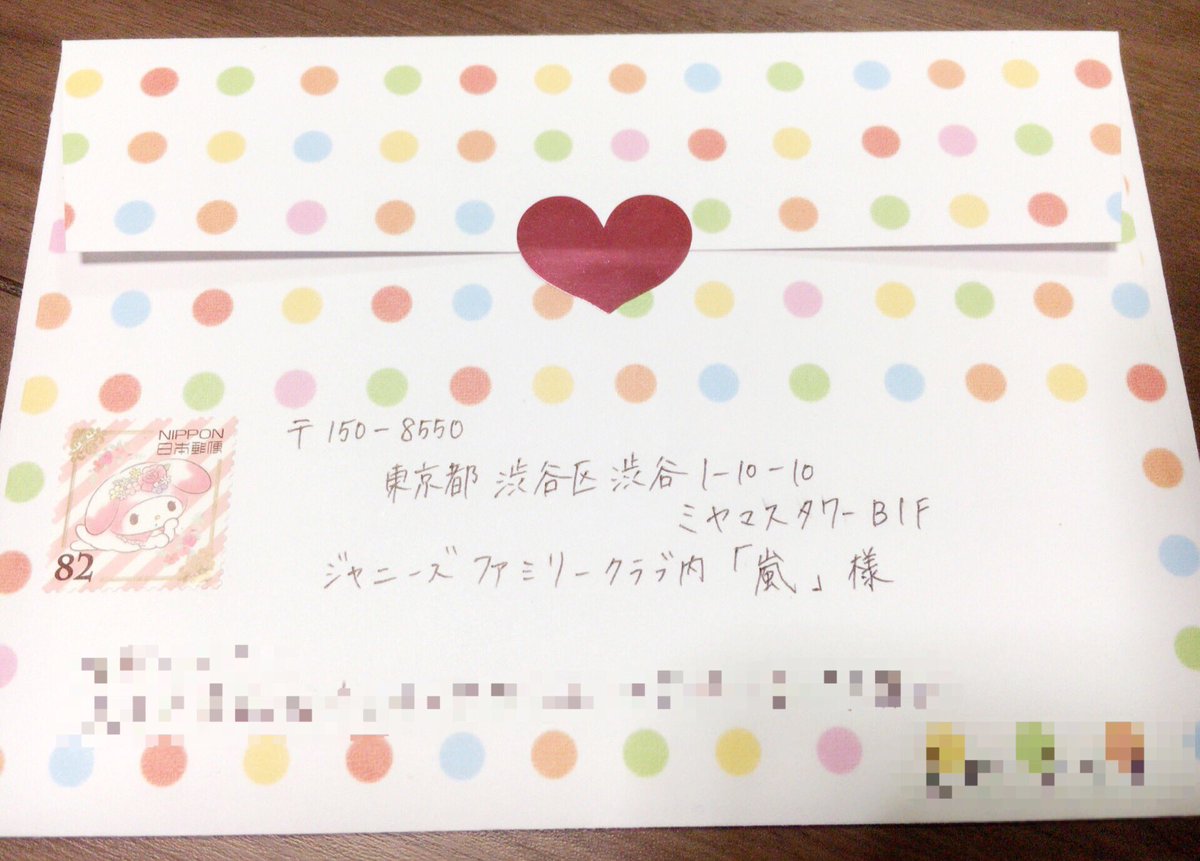 NIPPON
日本郵便
82
〒150-8550
東京都 渋谷区 渋谷 1-10-10
ミヤマスタワーB1F
ジャニーズ ファミリークラブ内「嵐」様